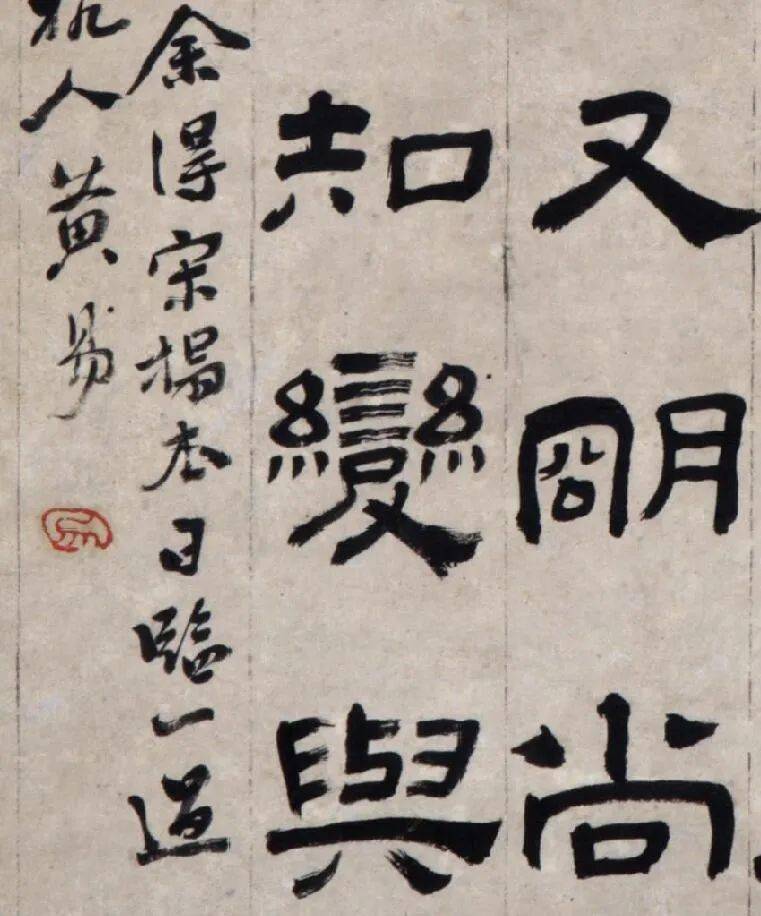 又朙尚
知變與
余得宋搨本日臨一過
杭人黃易